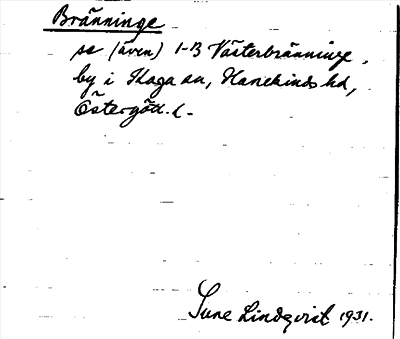 Bränninge
se (även) 1-3 Västerbränninge,
by i Skaga sn, Hanekinds hd,
Östergötl. l.
Sune Lindqvist 1931.